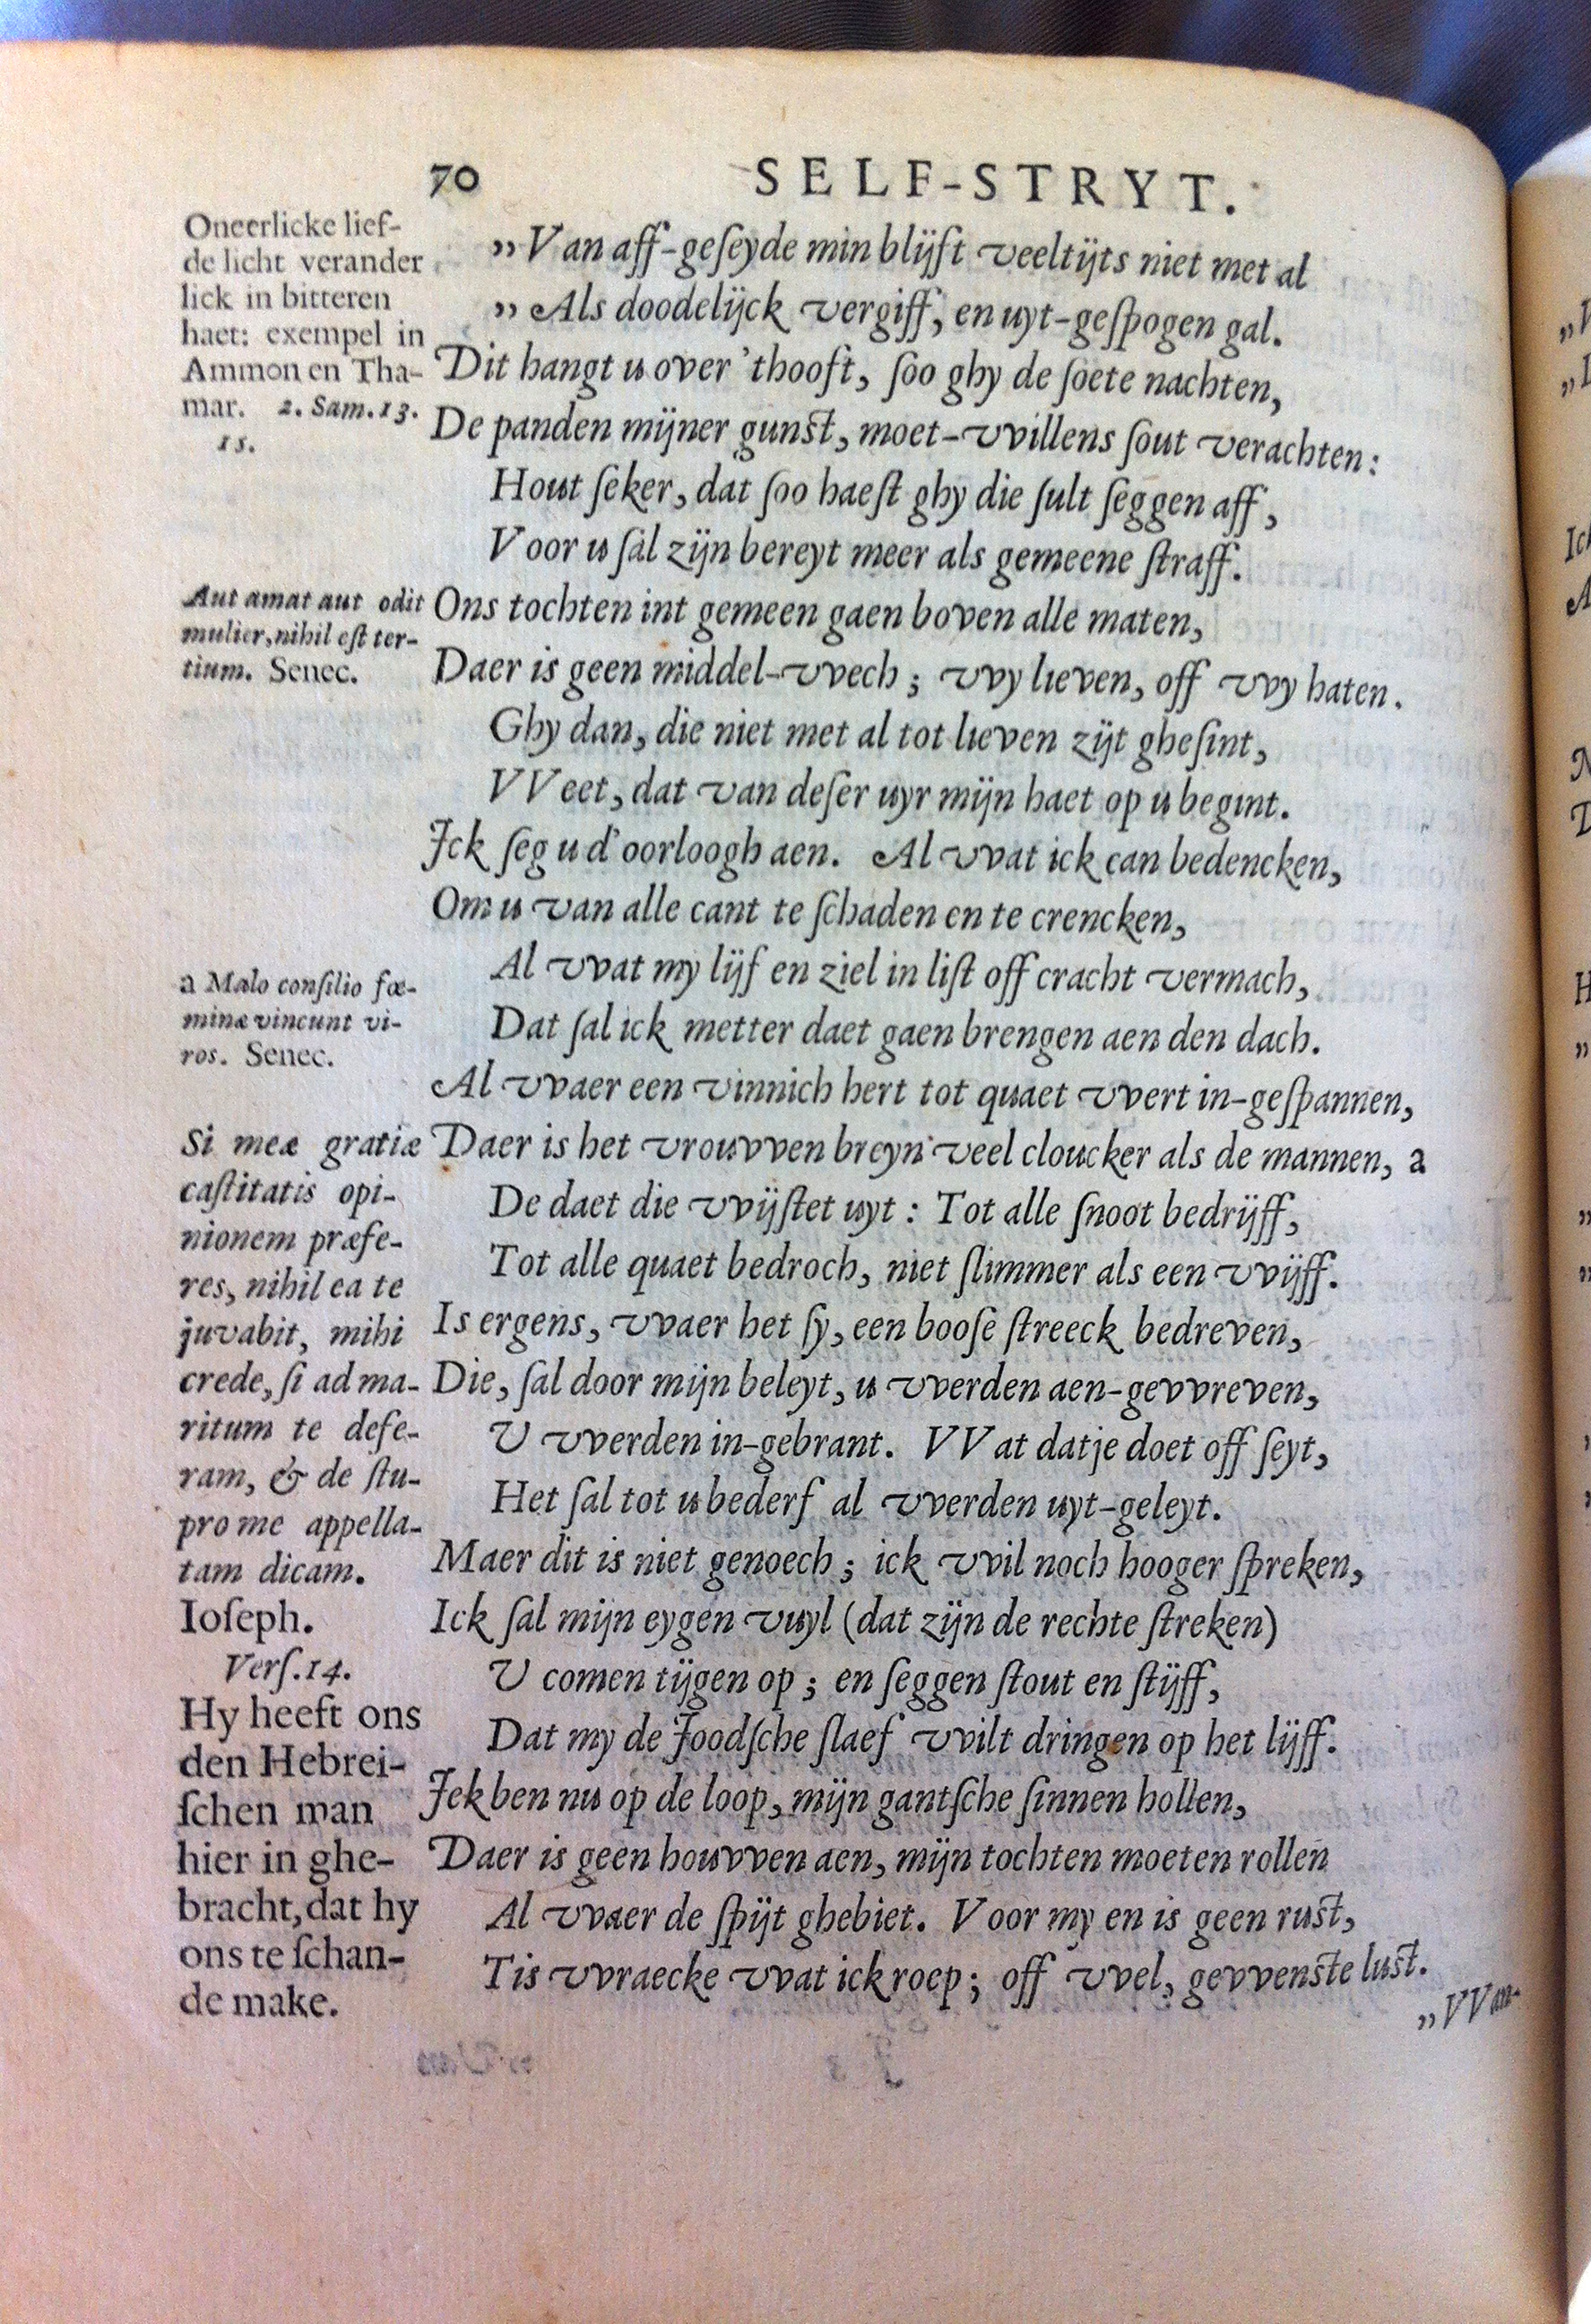 70 SELF-STRYT.
Oneerlicke lief-
de licht verander
lick in bitteren
haet: exempel in
Ammon en Tha-
mar. 2. Sam. 13.
15.
Aut amat aut odit
mulier, nihil eſt ter-
tium. Senec.
a Malo conſilio fœ-
minæ vincunt vi-
ros. Senec.
Si meæ gratiæ
caſtitatis opi-
nionem præfe-
res, nihil ea te
juvabit, mihi
crede, ſi ad ma-
ritum te defe-
ram, & de ſtu-
pro me appella-
tam dicam.
Ioſeph.
Verſ. 14.
Hy heeft ons
den Hebrei-
ſchen man
hier in ghe-
bracht, dat hy
ons te ſchan-
de make.
„ Van aff-geſeyde min blijft veeltijts niet met al
„ Als doodelijck vergiff, en uyt-geſpogen gal.
Dit hangt u over 'thooft, ſoo ghy de ſoete nachten,
De panden mijner gunſt, moet-vvillens ſout verachten:
Hout ſeker, dat ſoo haeſt ghy die ſult ſeggen aff,
Voor u ſal zijn bereyt meer als gemeene ſtraff.
Ons tochten int gemeen gaen boven alle maten,
Daer is geen middel-vvech; vvy lieven, off vvy haten.
Ghy dan, die niet met al tot lieven zijt gheſint,
VVeet, dat van deſer uyr mijn haet op u begint.
Ick ſeg u d'oorloogh aen. Al vvat ick can bedencken,
Om u van alle cant te ſchaden en te crencken,
Al vvat my lijf en ziel in liſt off cracht vermach,
Dat ſal ick metter daet gaen brengen aen den dach.
Al vvaer een vinnich hert tot quaet vvert in-geſpannen,
Daer is het vrouvven breyn veel cloucker als de mannen, a
De daet die vvijſtet uyt: Tot alle ſnoot bedrijff,
Tot alle quaet bedroch, niet ſlimmer als een vvijff.
Is ergens, vvaer het ſy, een booſe ſtreeck bedreven,
Die, ſal door mijn beleyt, u vverden aen-gevvreven,
U vverden in-gebrant. VVat datje doet off ſeyt,
Het ſal tot u bederf al vverden uyt-geleyt.
Maer dit is niet genoech; ick vvil noch hooger ſpreken,
Ick ſal mijn eygen vuyl (dat zijn de rechte ſtreken)
U comen tijgen op; en ſeggen ſtout en ſtijff,
Dat my de Joodſche ſlaef vvilt dringen op het lijff.
Jek ben nu op de loop, mijn gantſche ſinnen hollen,
Daer is geen houvven aen, mijn tochten moeten rollen
Al vvaer de ſpijt ghebiet. Voor my en is geen ruſt,
Tis vvraecke vvat ick roep; off vvel, gevvenſte luſt.
„ VVan-